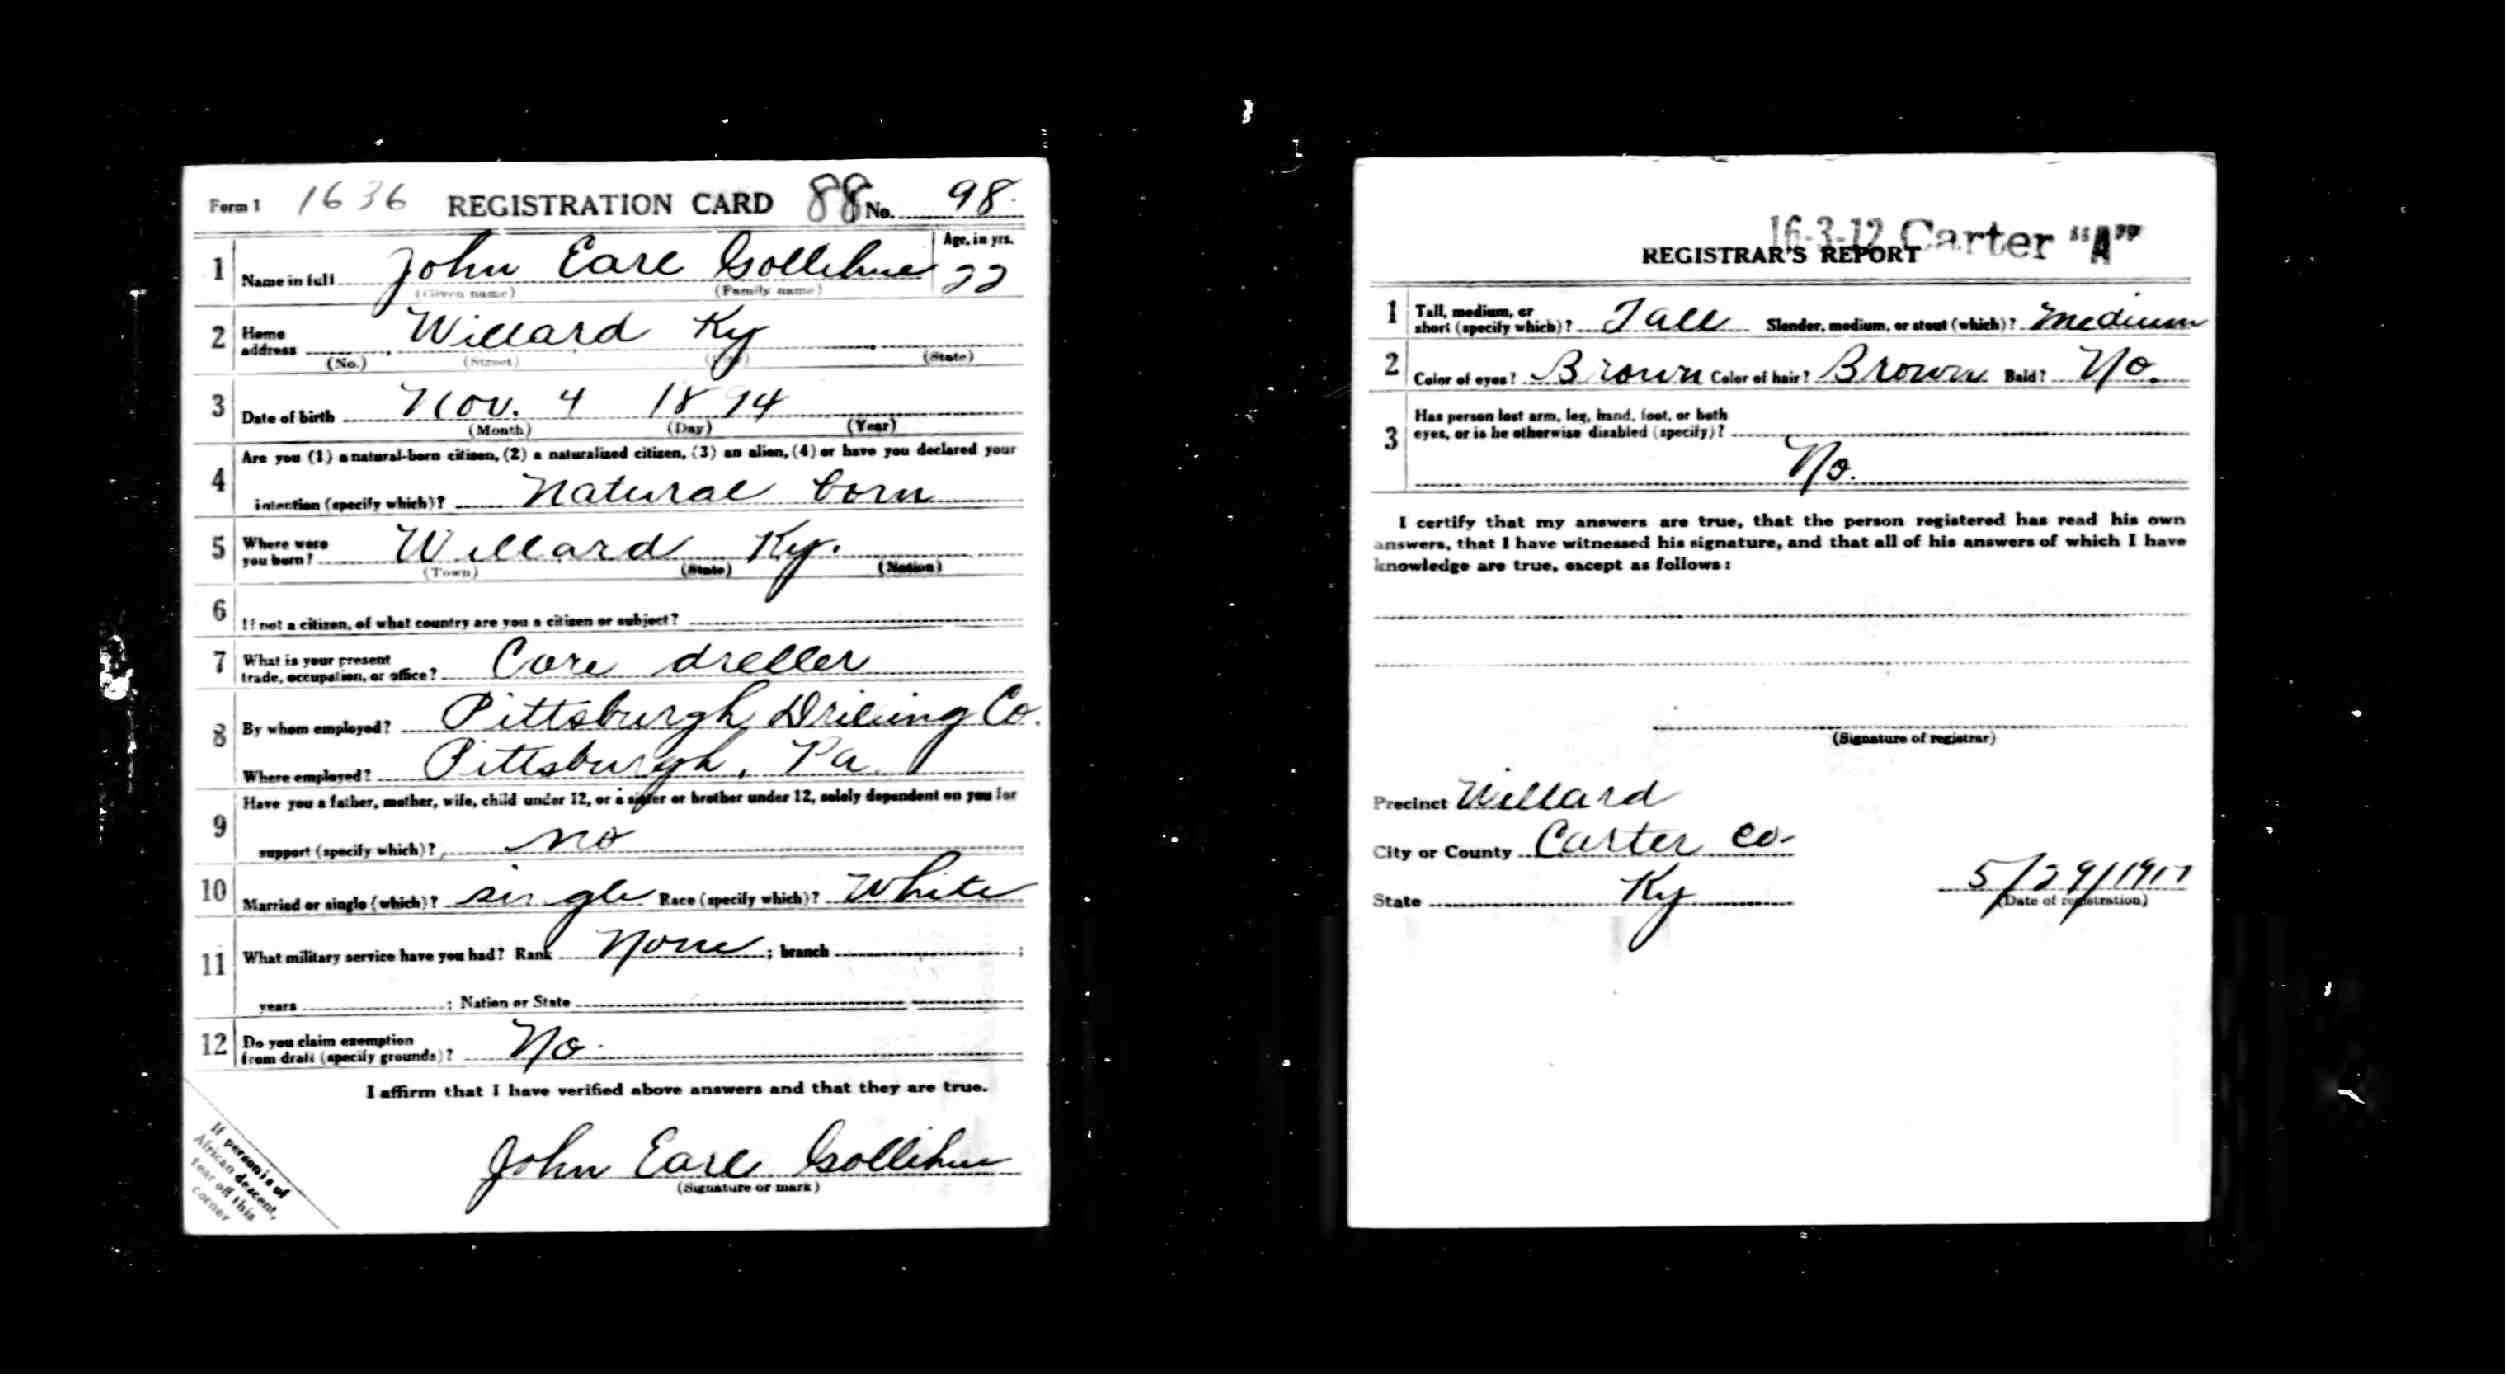 Form 1 1636 REGISTRATION CARD 88 No. 98
1 Name in full John Earl Gollihue Age, in yrs. 22
(Given name) (Family name)
2 Home address Willard Ky
(No.) (Street) (City) (State)
3 Date of birth Nov. 4 1894
(Month) (Day) (Year)
4 Are you (1) a natural-born citizen, (2) a naturalized citizen, (3) an alien, (4) or have you declared your
intention (specify which)? Natural born
5 Where were you born? Willard Ky.
(Town) (State) (Nation)
6 If not a citizen, of what country are you a citizen or subject?
7 What is your present trade, occupation, or office? Core dreller
8 By whom employed? Pittsburgh Drilling Co.
Where employed? Pittsburgh, Pa.
9 Have you a father, mother, wife, child under 12, or a sister or brother under 12, solely dependent on you for
support (specify which)? no
10 Married or single (which)? single Race (specify which)? White
11 What military service have you had? Rank None ; branch ;
years ; Nation or State
12 Do you claim exemption from draft (specify grounds)? No.
I affirm that I have verified above answers and that they are true.
John Earl Gollihue
(Signature or mark)
If person is of
African descent,
tear off this
corner
16-3-12 Carter "A"
REGISTRAR'S REPORT
1 Tall, medium, or short (specify which)? Tall Slender, medium, or stout (which)? Medium
2 Color of eyes? Brown Color of hair? Brown Bald? No.
3 Has person lost arm, leg, hand, foot, or both
eyes, or is he otherwise disabled (specify)?
No.
I certify that my answers are true, that the person registered has read his own
answers, that I have witnessed his signature, and that all of his answers of which I have
knowledge are true, except as follows:
(Signature of registrar)
Precinct Willard
City or County Carter Co.
State Ky 5/29/1917
(Date of registration)